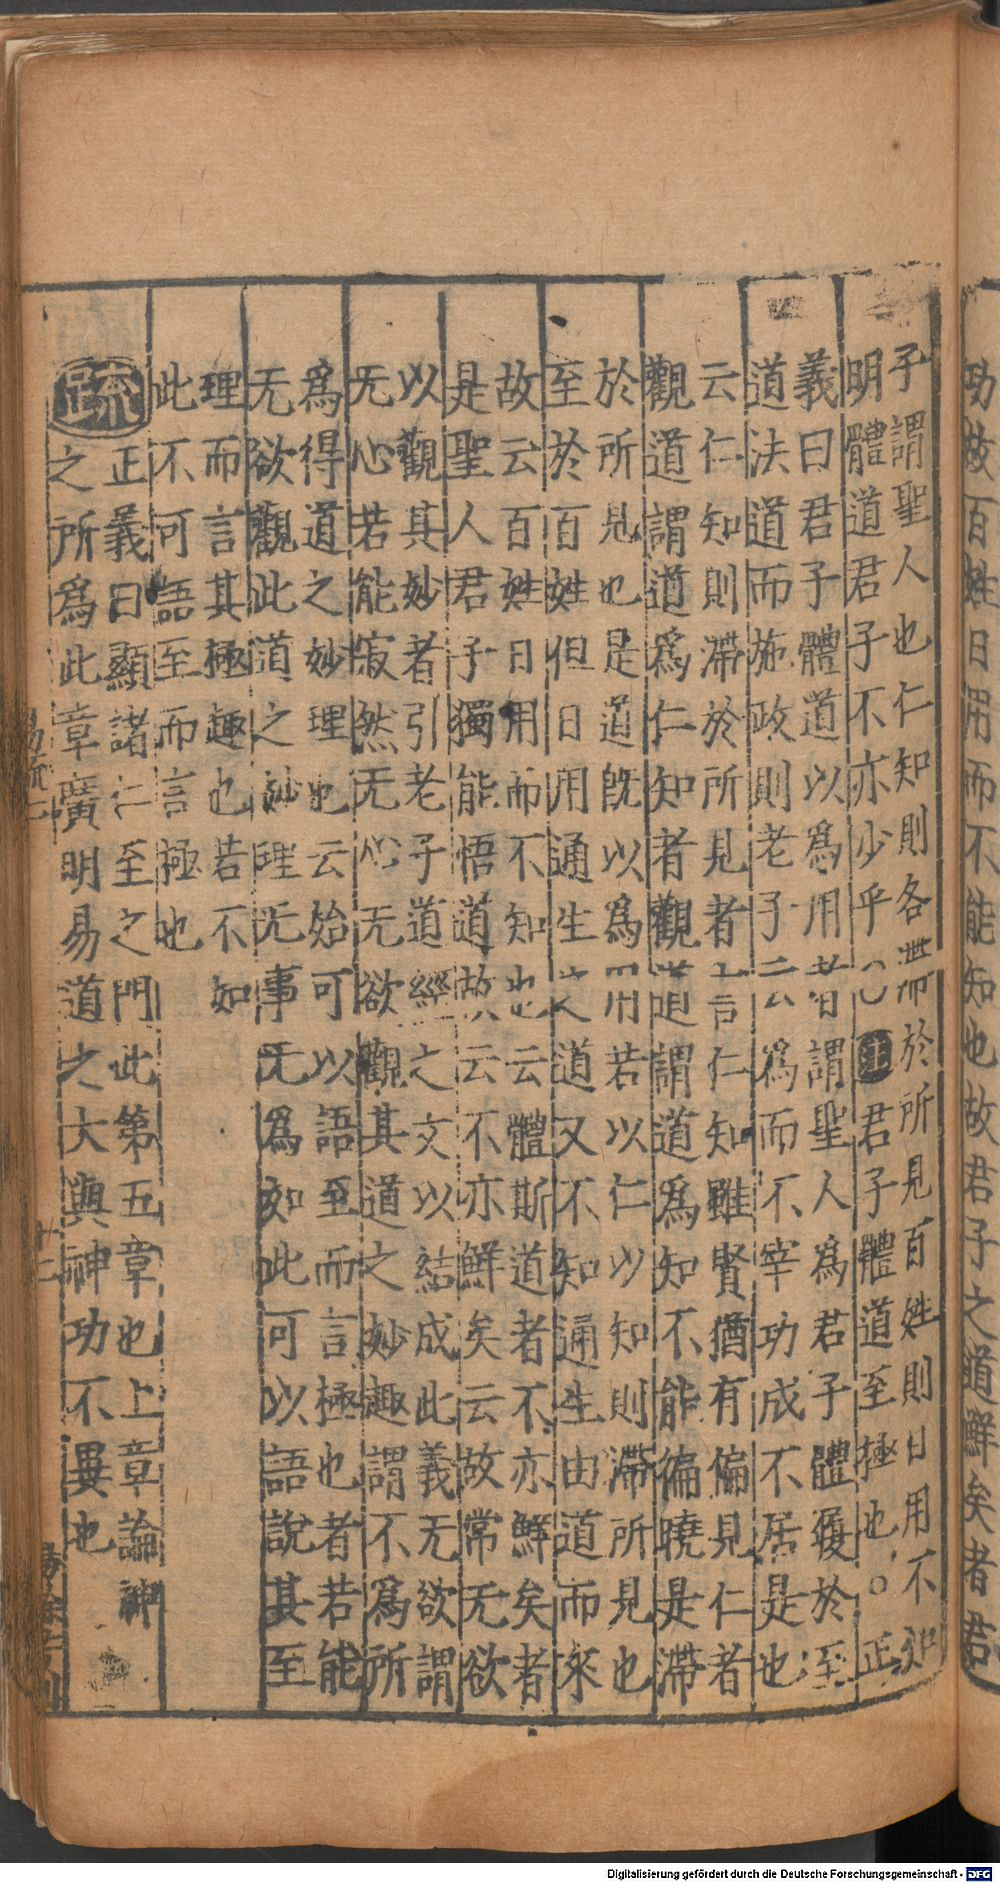 功故百姓日用而不能知也故君子之道鮮矣者君
子謂聖人也仁知則各滯於所見百姓則日用不知
明體道君子不亦少乎○注君子體道至極也○正
義曰君子體道以爲用者謂聖人爲君子體履於至
道法道而施政則老子云爲而不宰功成不居是也
云仁知則滯於所見者言仁知雖賢猶有偏見仁者
觀道謂道爲仁知者觀道謂道爲知不能徧曉是滯
於所見也是道既以爲用若以仁以知則滯所見也
至於百姓但日用通生之道又不知通生由道而來
故云百姓日用而不知也云體斯道者不亦鮮矣者
是聖人君子獨能悟道故云不亦鮮矣云故常无欲
以觀其妙者引老子道經之文以結成此義无欲謂
无心若能寂然无心无欲觀其道之妙趣謂不爲所
爲得道之妙理也云始可以語至而言極也者若能
无欲觀此道之妙理无事无爲如此可以語說其至
理而言其極趣也若不如
此不可語至而言極也
疏
正義曰顯諸仁至之門此第五章也上章論神
之所爲此章廣明易道之大與神功不異也
易疏七
十二
Digitalisierung gefördert durch die Deutsche Forschungsgemeinschaft - DFG